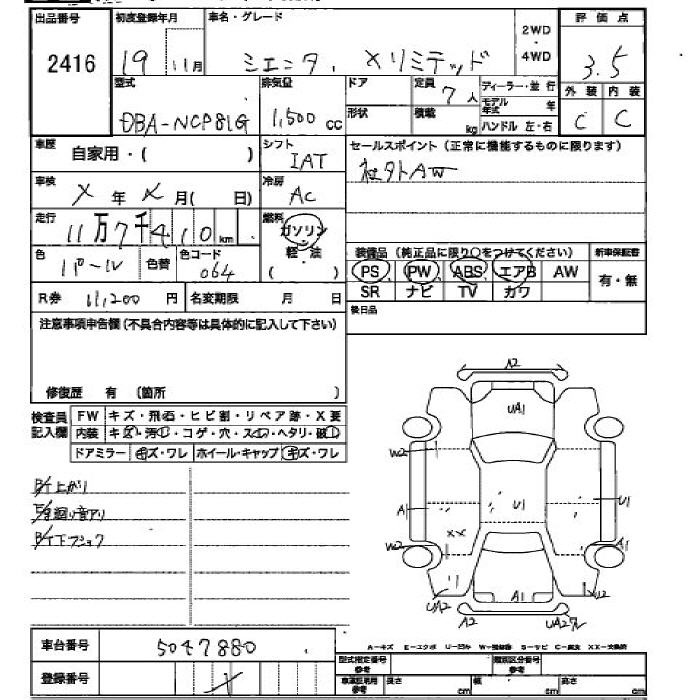 出品番号 初度登録年月 車名・グレード 2WD ・ 4WD 評価点
2416 19 11月 シエンタ. Xリミテッド 3.5
型式 排気量 ドア 定員 7人 ディーラー・並行 外装 内装
DBA-NCP81G 1,500 cc 形状 積載 kg モデル年式 年 C C
ハンドル 左・右
車歴 自家用・( ) シフト IAT セールスポイント(正常に機能するものに限ります)
社外AW
車検 X年 X月( 日) 冷房 AC
走行 11万7千410km 燃料 ガソリン 軽・法 ( )
装備品(純正品に限り○をつけてください) 新車保証書
色 パール 色替 色コード 064 PS PW ABS エアB AW 有・無
SR ナビ TV カワ
R券 11,200 円 名変期限 月 日
後日品
注意事項申告欄(不具合内容等は具体的に記入して下さい)
修復歴 有 (箇所 )
検査員記入欄 FW キズ・飛石・ヒビ割・リペア跡・X要
内装 キズ・汚レ・コゲ・穴・スレ・ヘタリ・破レ
ドアミラー キズ・ワレ ホイール・キャップ キズ・ワレ
A2
UA1
W2
A1 U1 U1
XX
W2 A1
UA2 A1 U2
A2 UA2
車台番号 5047880
登録番号
A-キズ E-エクボ
型式指定番号 参考 類別区分番号 参考
長さ cm 幅 cm 高さ cm